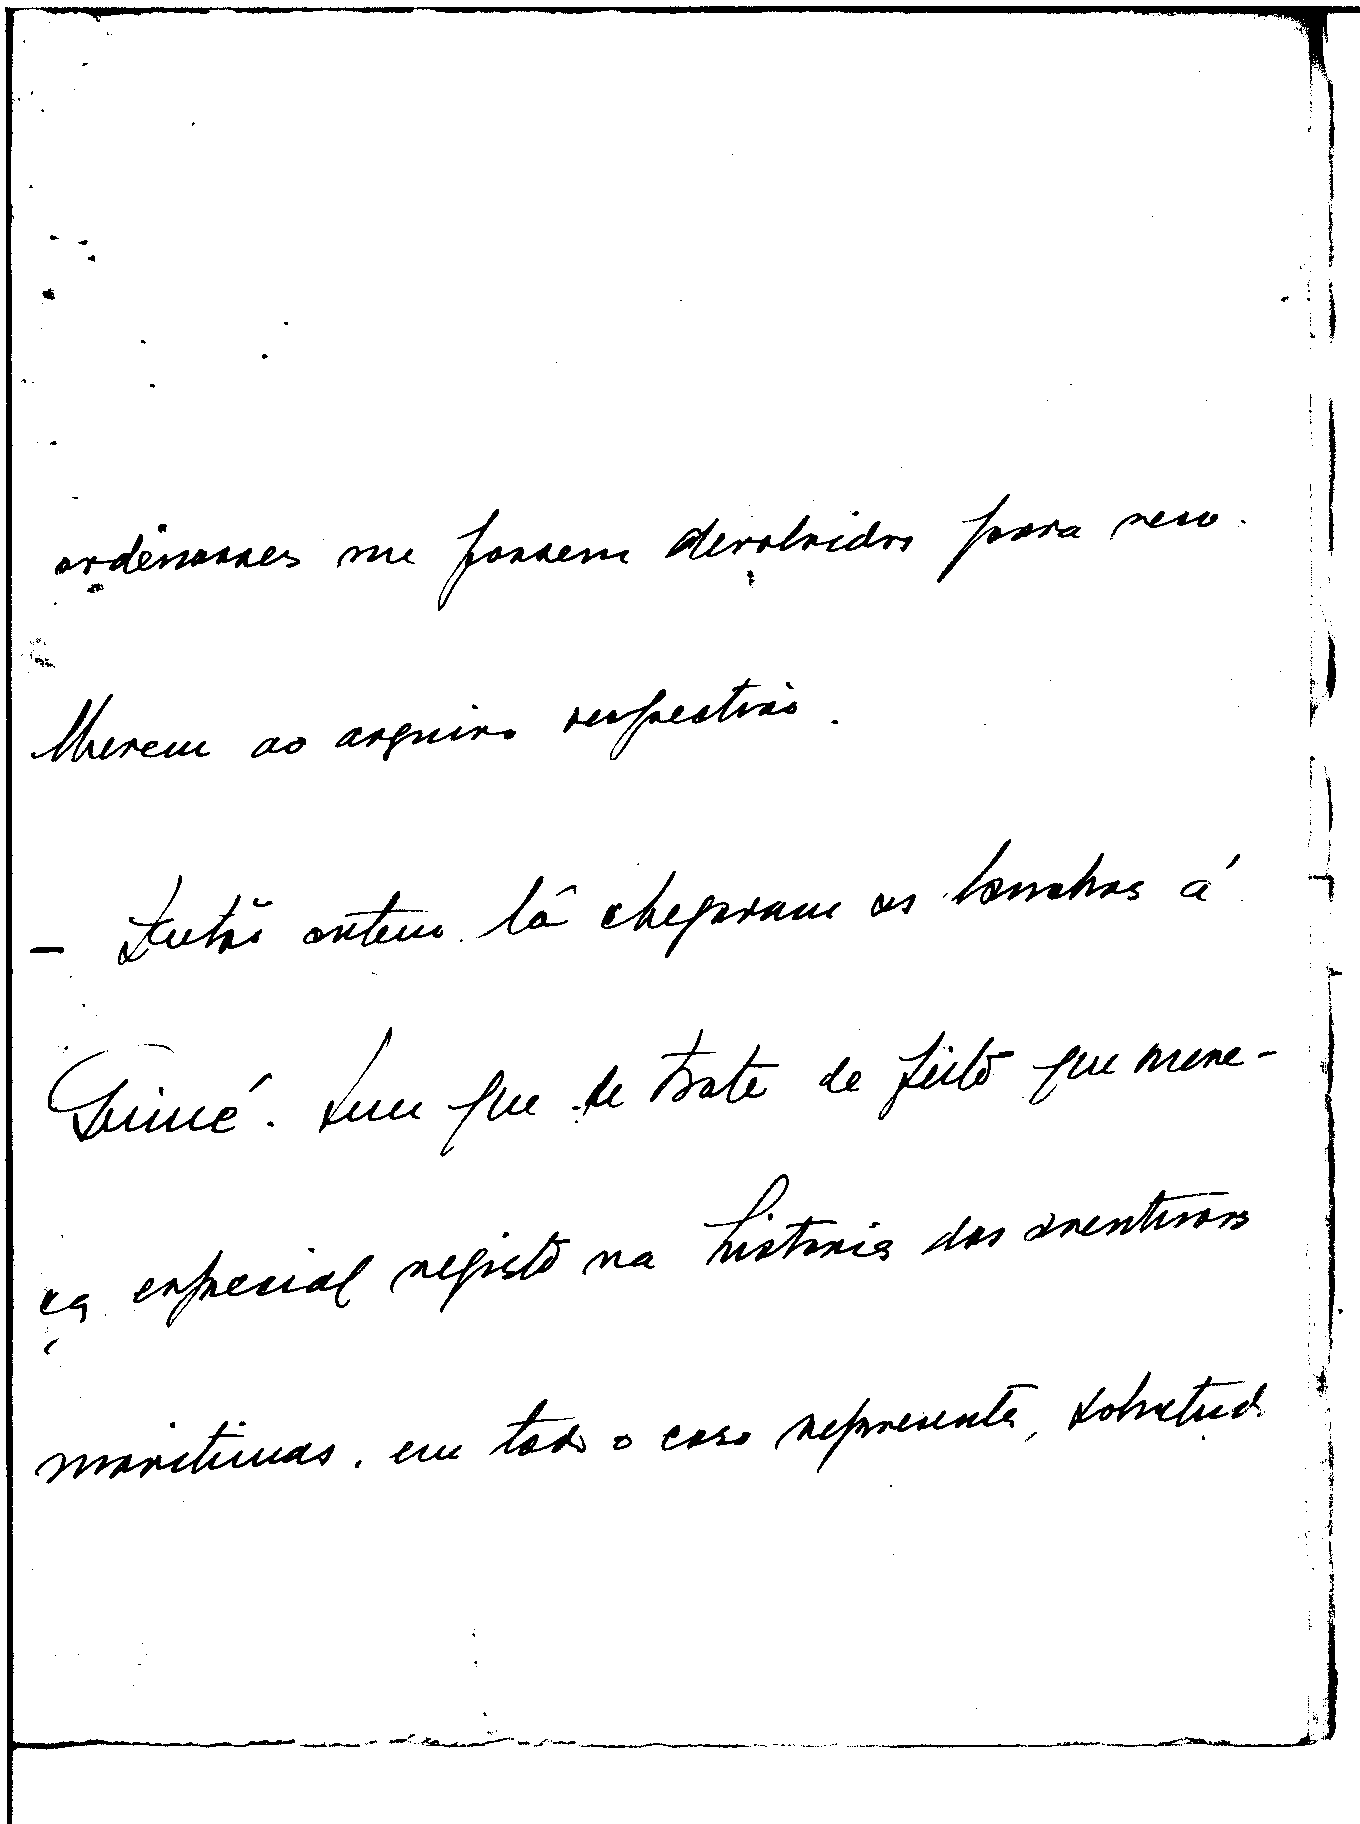 ordenasses me fossem devolvidos para reco-
lherem ao arquivo respectivo.
— Então ontem lá chegaram as lanchas á
Guiné. Sem que se trate de feito que mere-
ça especial registo na historia das aventuras
maritimas, em todo o caso representa, sobretudo